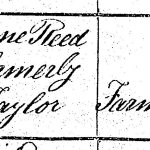 ne Reed
rmerly
aylor
Farm